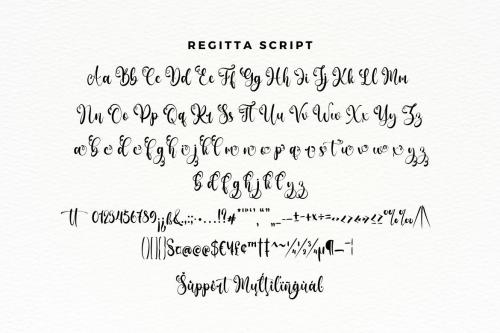 REGITTA SCRIPT
Aa Bb Cc Dd Ee Ff Gg Hh Ii Jj Kk Ll Mm
Nn Oo Pp Qq Rr Ss Tt Uu Vv Ww Xx Yy Zz
a b c d e f g h i j k l m n o p q r s t u v w x y z
b d f g h j k l y z
0123456789
Support Mutlilingual